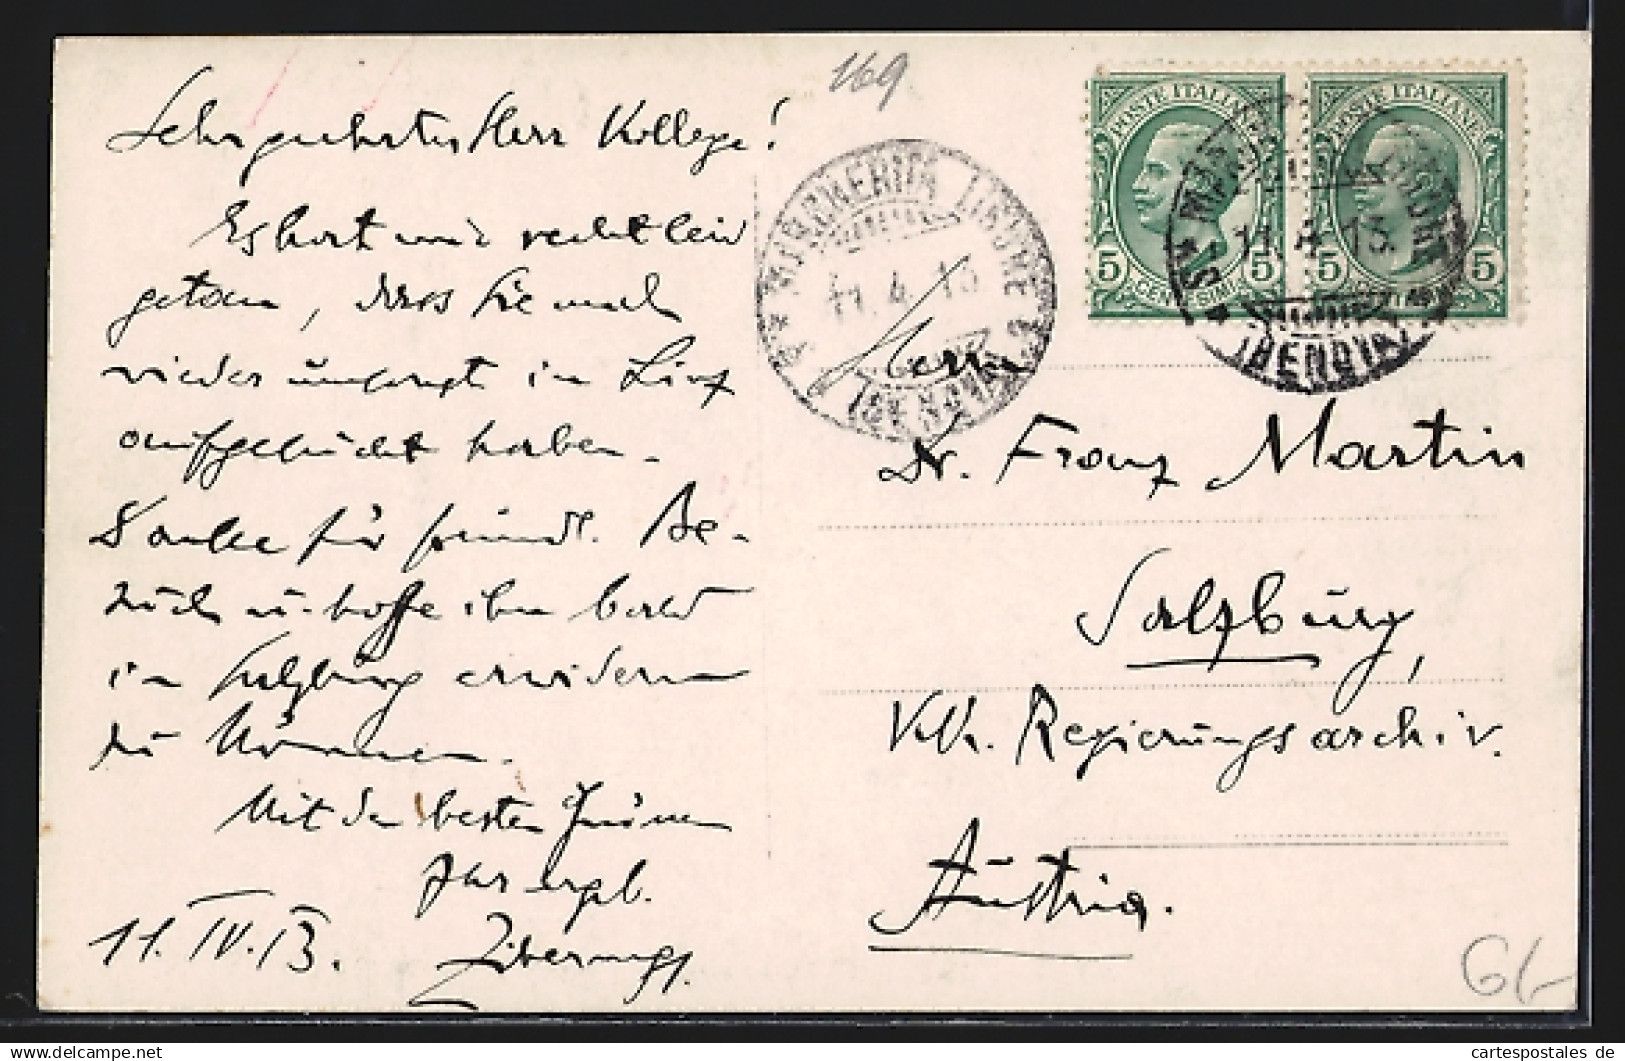 Sehr geehrter Herr Kollege!
Es hat mir recht leid
getan, dass Sie mich
wieder umsonst in Linz
aufgesucht haben.
Danke für freundl. Be-
such u. hoffe ihn bald
in Salzburg erwidern
zu können.
Mit den besten Grüssen
Ihr ergb.
11. IV. 13.
169
POSTE ITALIANE
5 CENTESIMI 5
POSTE ITALIANE
5 5
LIGURE
11.4.13
(GENOVA)
11.4.13
(GENOVA)
Herrn
Dr. Franz Martin
Salzburg,
K.k. Regierungsarchiv.
Austria.
cartespostales de